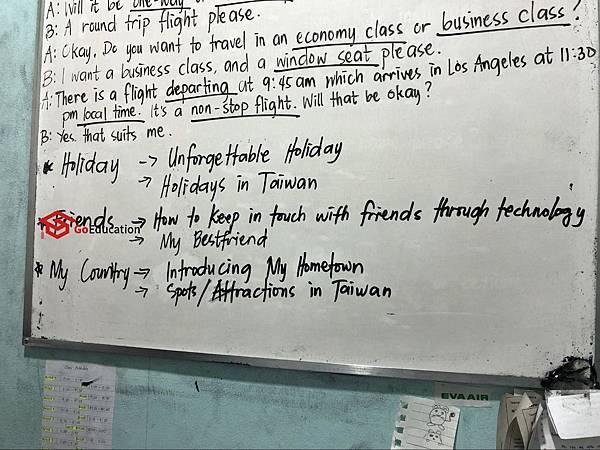 A: Will it be one-way or
B: A round trip flight please.
A: Okay, Do you want to travel in an economy class or business class?
B: I want a business class, and a window seat please.
A: There is a flight departing at 9:45 am which arrives in Los Angeles at 11:30
pm local time. It's a non-stop flight. Will that be okay?
B: Yes. that suits me.
* Holiday -> Unforgettable Holiday
-> Holidays in Taiwan
* Friends -> How to keep in touch with friends through technology
GoEducation
-> My Bestfriend
* My Country -> Introducing My Hometown
-> Spots/Attractions in Taiwan
EVA AIR